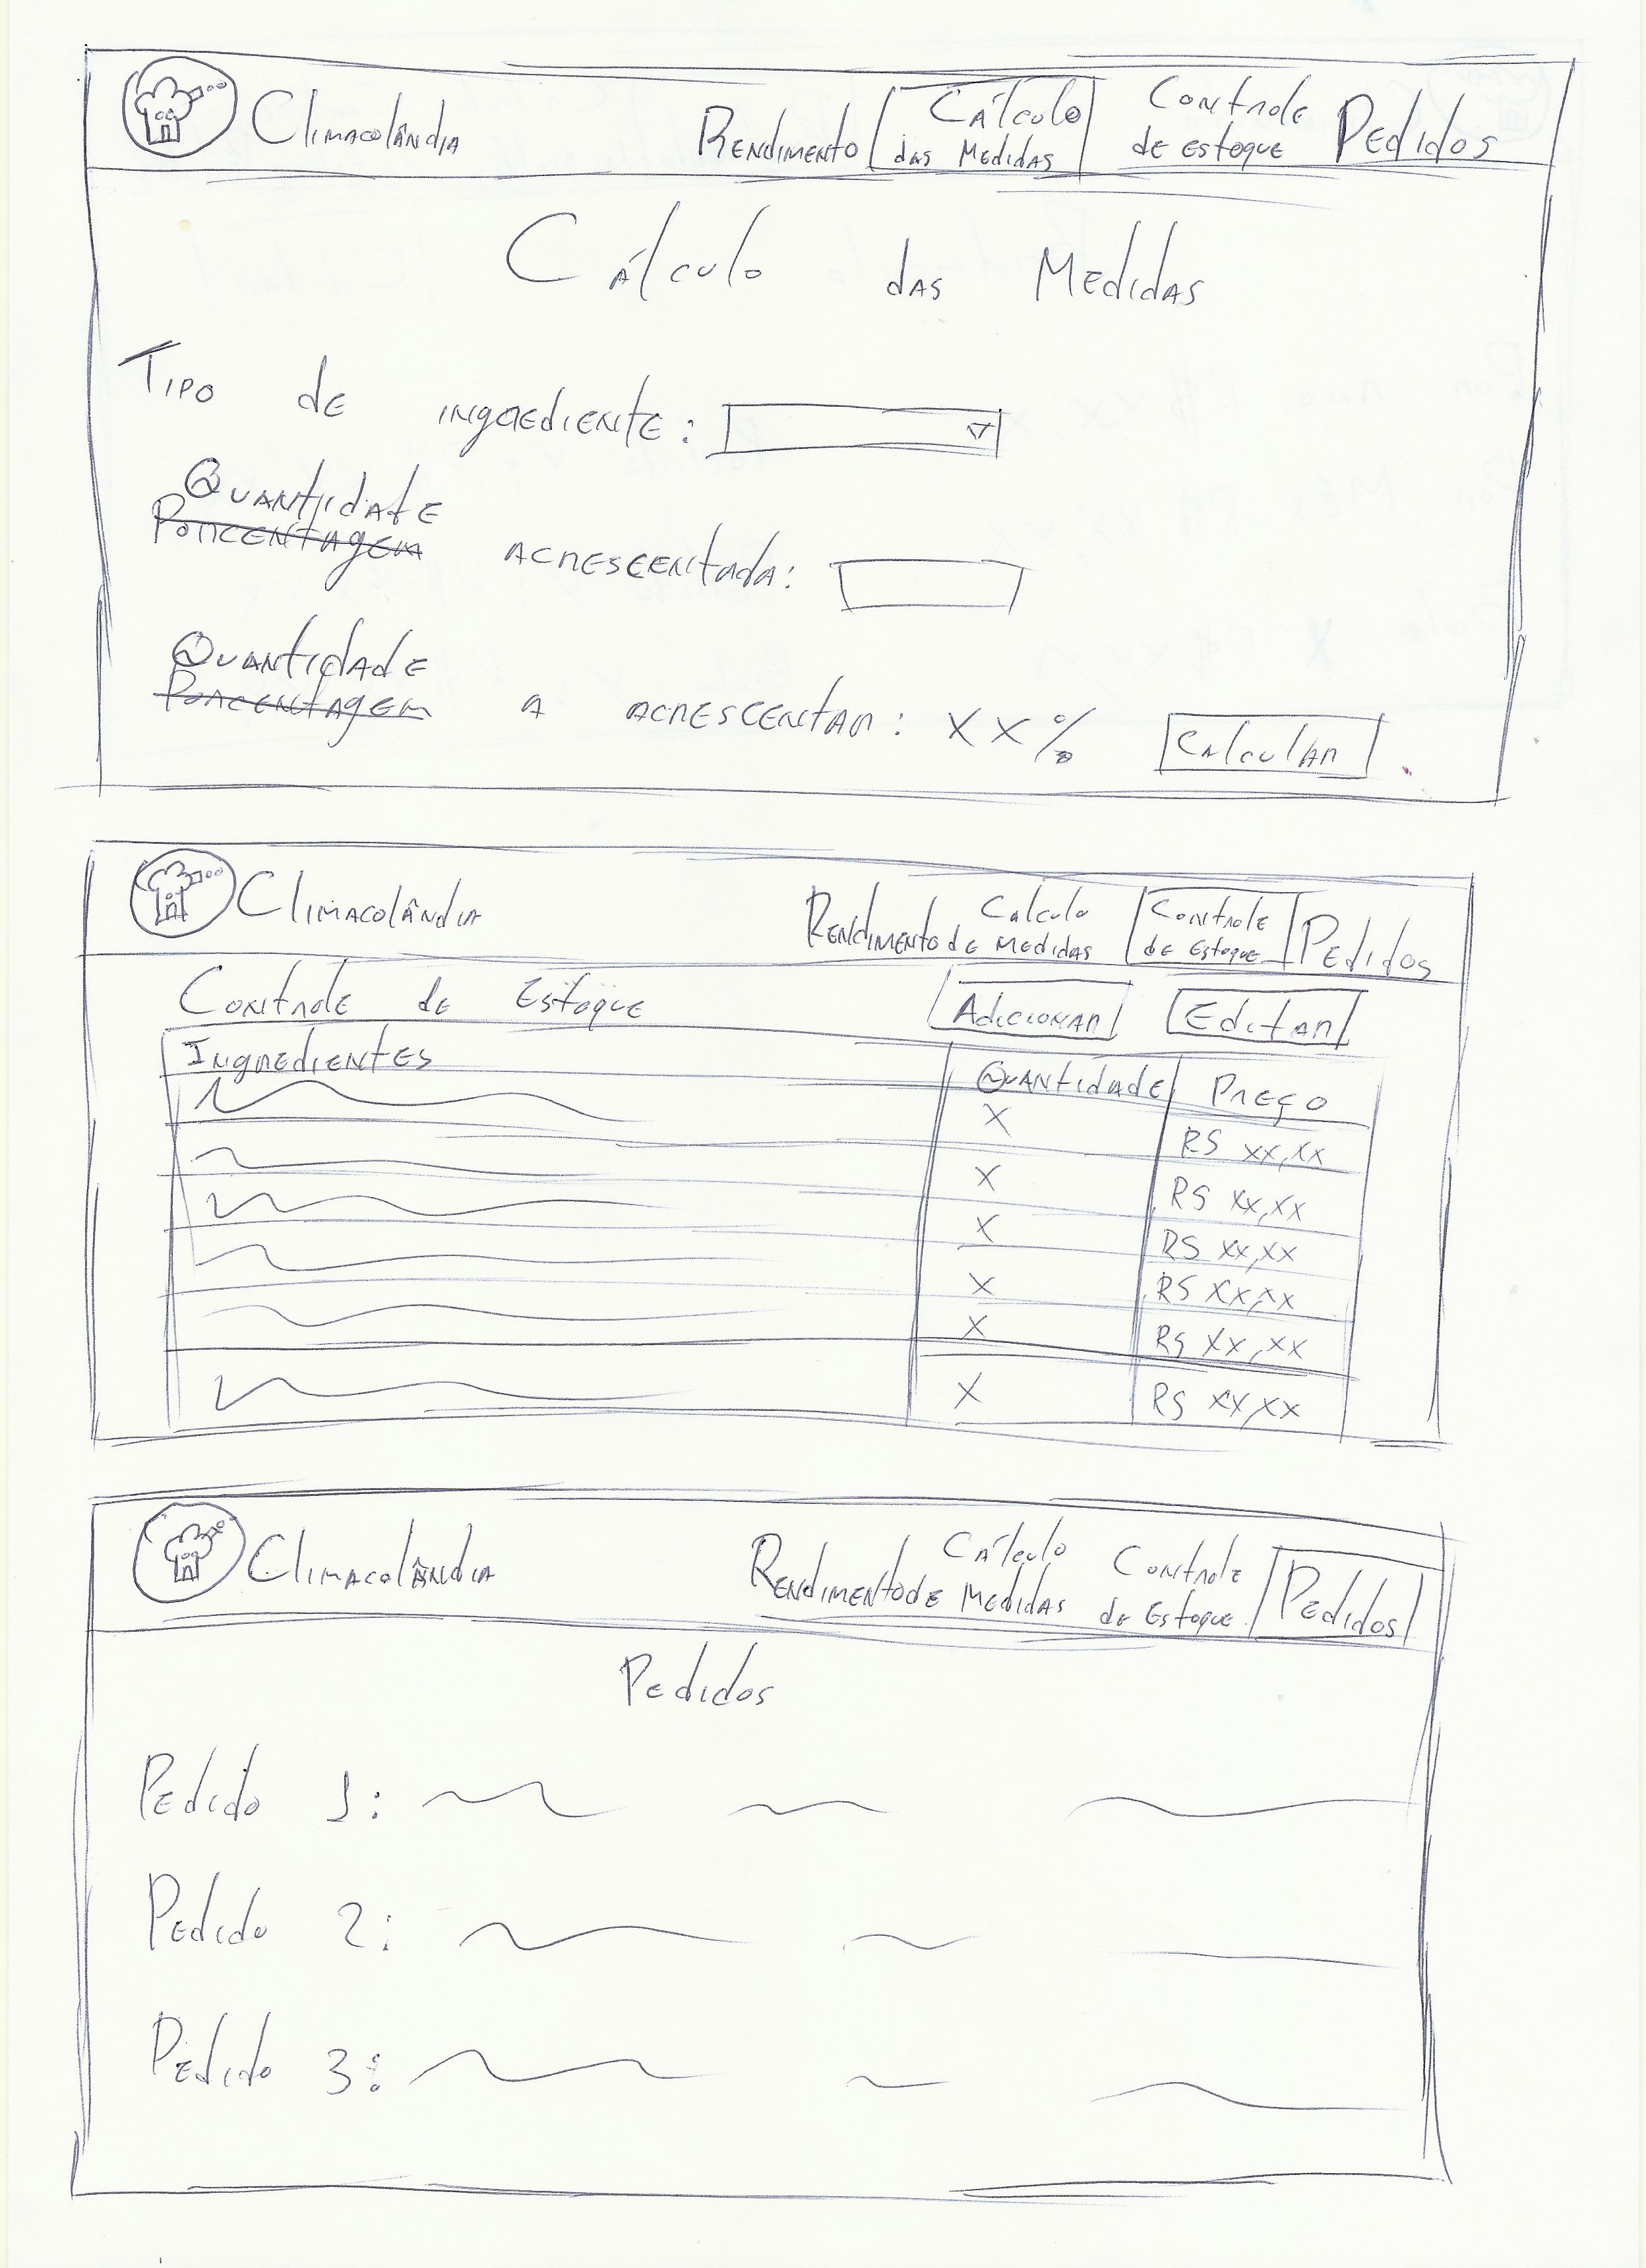 Climacolândia
Rendimento Cálculo das Medidas Controle de estoque Pedidos
Cálculo das Medidas
Tipo de ingrediente:
Quantidate
Porcentagem acrescentada:
Quantidade
Porcentagem a acrescentar: XX% Calcular
Climacolândia
Rendimento Calculo de Medidas Controle de Estoque Pedidos
Controle de Estoque Adicionar Editar
Ingredientes Quantidade Preço
X RS xx,xx
X RS xx,xx
X RS xx,xx
X RS xx,xx
X RS xx,xx
X RS xx,xx
Climacolândia
Rendimento Cálculo de Medidas Controle de Estoque Pedidos
Pedidos
Pedido 1:
Pedido 2:
Pedido 3: